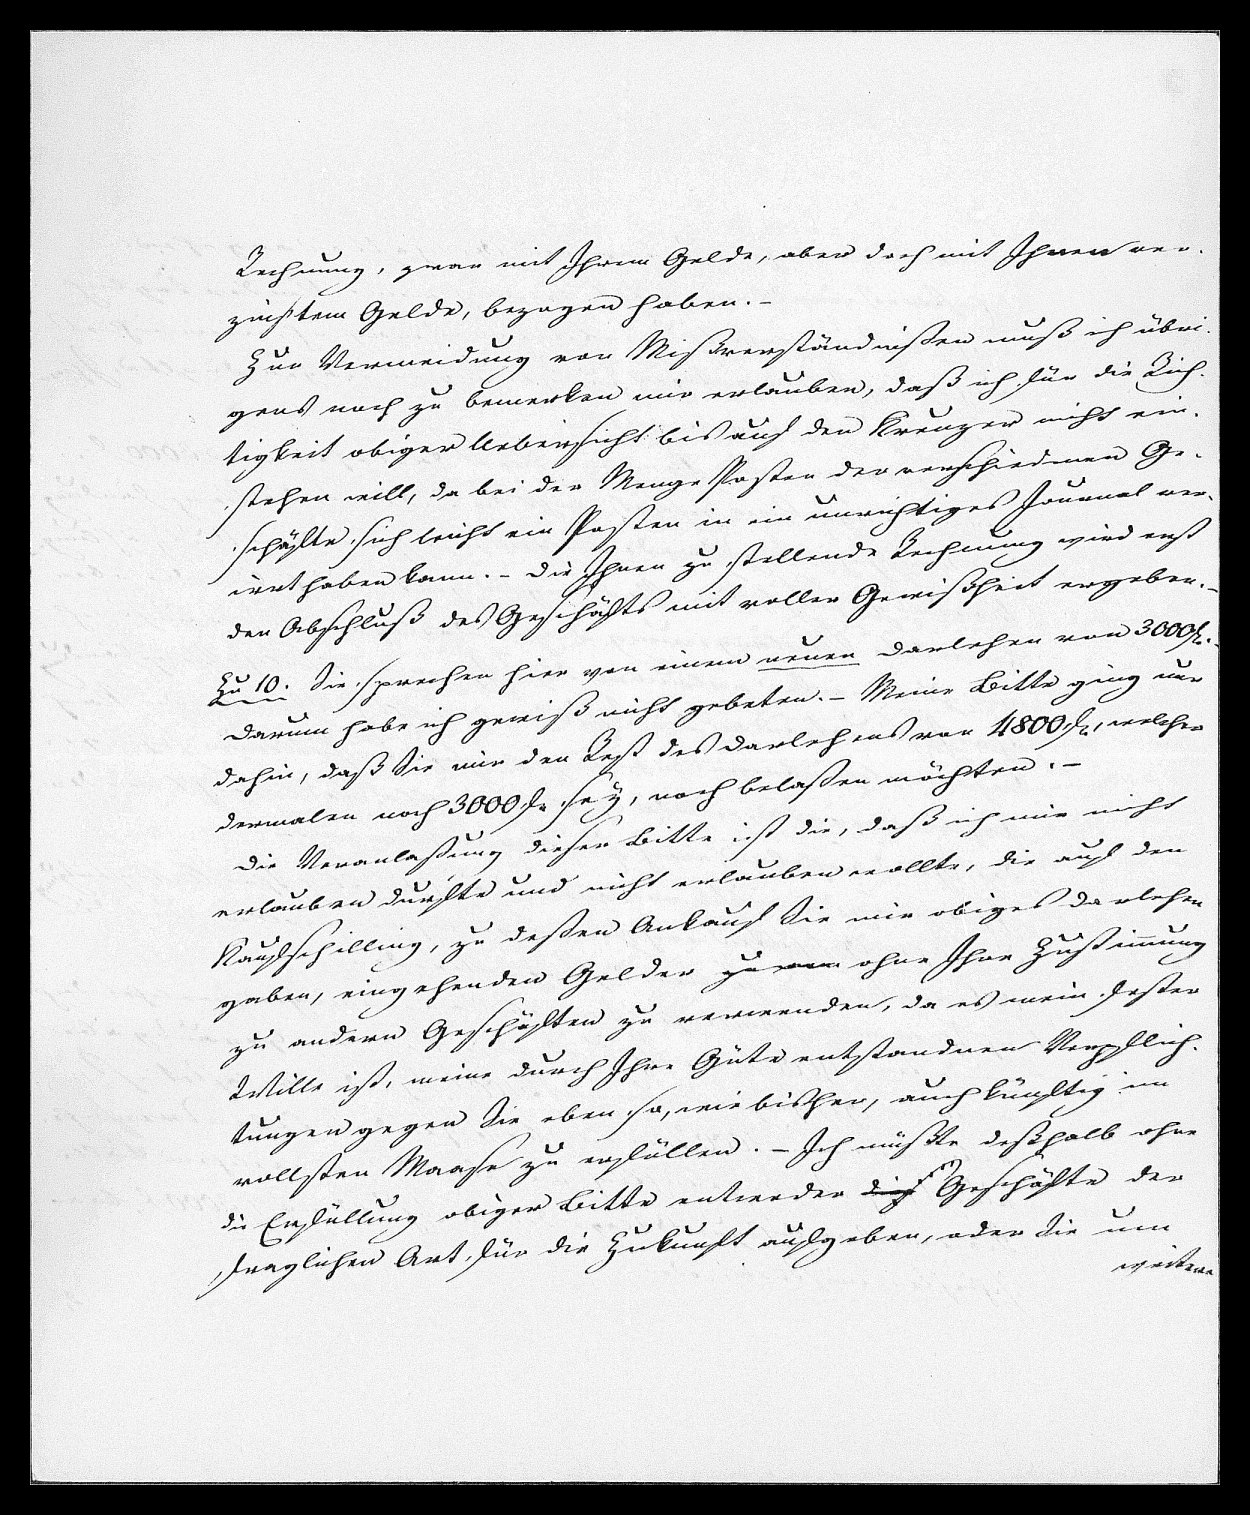 Rechnung, zwar mit Ihrem Gelde, aber doch mit Ihnen ver-
zinstem Gelde, bezogen haben. –
Zur Vermeidung von Mißverständnißen muß ich übri-
gens noch zu bemerken mir erlauben, daß ich für die Rich-
tigkeit obiger Uebersicht bis auf den Kreuzer nicht ein-
stehen will, da bei der Menge Posten der verschiednen Ge-
schäfte sich leicht ein Posten in ein unrichtiges Journal ver-
irrt haben kann. – Die Ihnen zu stellende Rechnung wird erst
den Abschluß des Geschäfts mit voller Gewißheit ergeben. –
Zu 10. Sie sprechen hier von einem neuen Darlehen von 3000 fr. –
Darum habe ich gewiß nicht gebeten. – Meine Bitte ging nur
dahin, daß Sie mir den Rest des Darlehens von 4800 fr, welcher
dermalen noch 3000 fr sey, noch belaßen möchten. –
Die Veranlaßung dieser Bitte ist die, daß ich mir nicht
erlauben durfte und nicht erlauben wollte, die auf den
Kaufschilling, zu deßen Ankauf Sie mir obiges Darlehen
gaben, eingehenden Gelder ohne Ihre Zustimmung
zu andern Geschäften zu verwenden, da es mein fester
Wille ist, meine durch Ihre Güte entstandnen Verpflich-
tungen gegen Sie eben so, wie bisher, auch künftig im
vollsten Maase zu erfüllen. – Ich müßte deßhalb ohne
die Erfüllung obiger Bitte entweder Geschäfte der
fraglichen Art für die Zukunft aufgeben, oder Sie um
weitere